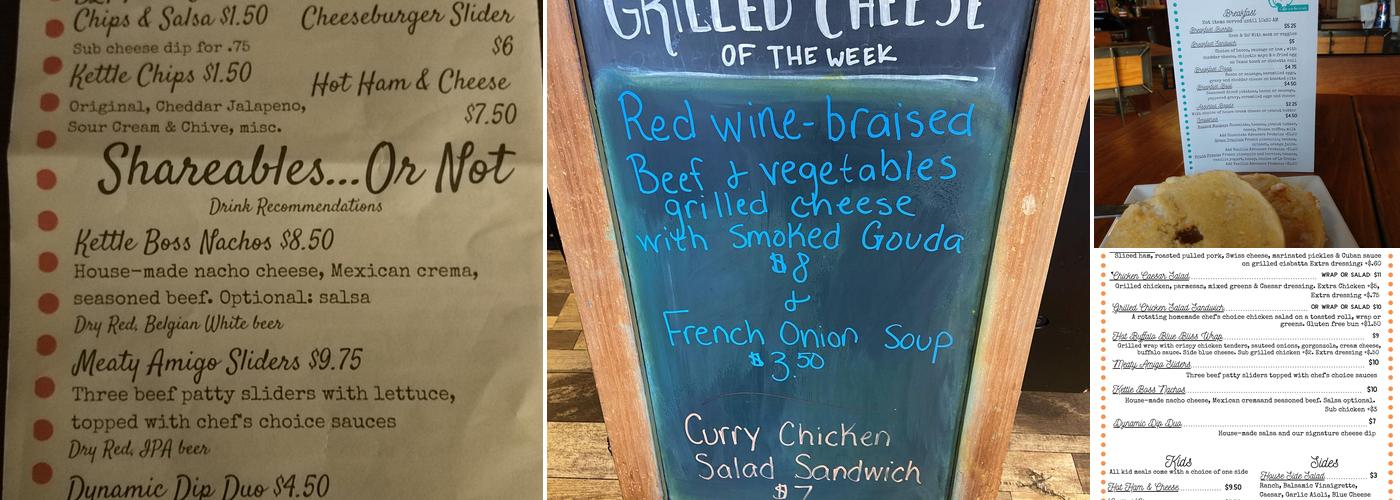 Chips & Salsa $1.50
Sub cheese dip for .75
Kettle Chips $1.50
Original, Cheddar Jalapeno,
Sour Cream & Chive, misc.
Cheeseburger Slider
$6
Hot Ham & Cheese
$7.50
Shareables...Or Not
Drink Recommendations
Kettle Boss Nachos $8.50
House-made nacho cheese, Mexican crema,
seasoned beef. Optional: salsa
Dry Red, Belgian White beer
Meaty Amigo Sliders $9.75
Three beef patty sliders with lettuce,
topped with chef's choice sauces
Dry Red, IPA beer
Dynamic Dip Duo $4.50
GRILLED CHEESE
OF THE WEEK
Red wine-braised
Beef & vegetables
grilled cheese
with Smoked Gouda
$8
&
French Onion Soup
$3.50
Curry Chicken
Salad Sandwich
$7
Breakfast
Hot items served until 10:30 AM
Breakfast Burrito $5.25
Breakfast Sandwich $5
$4.75
$4.50
$2.25
$4.50
Sliced ham, roasted pulled pork, Swiss cheese, marinated pickles & Cuban sauce
on grilled ciabatta Extra dressing: +$.60
Chicken Caesar Salad WRAP OR SALAD $11
Grilled chicken, parmesan, mixed greens & Caesar dressing. Extra Chicken +$3,
Extra dressing +$.75
Grilled Chicken Salad Sandwich OR WRAP OR SALAD $10
A rotating homemade chef's choice chicken salad on a toasted roll, wrap or
greens. Gluten free bun +$1.50
Hot Buffalo Blue Bliss Wrap $9
Grilled wrap with crispy chicken tenders, sauteed onions, gorgonzola, cream cheese,
buffalo sauce. Side blue cheese. Sub grilled chicken +$2. Extra dressing +$.50
Meaty Amigo Sliders $10
Three beef patty sliders topped with chef's choice sauces
Kettle Boss Nachos $10
House-made nacho cheese, Mexican cremaand seasoned beef. Salsa optional.
Sub chicken +$3
Dynamic Dip Duo $7
House-made salsa and our signature cheese dip
Kids
All kid meals come with a choice of one side
Hot Ham & Cheese $9.50
Sides
House Side Salad $3
Ranch, Balsamic Vinaigrette,
Caesar, Garlic Aioli, Blue Cheese